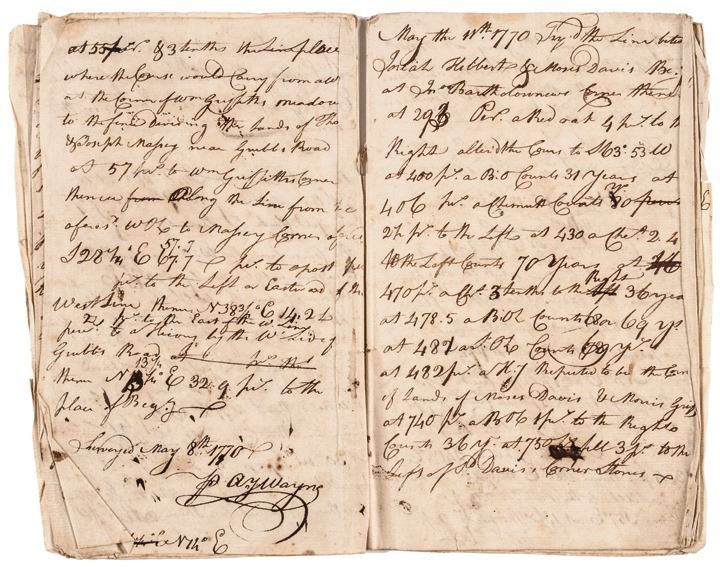 at 55 pr. & 3 tenths the Line place
where the Course would Carry from a W
at the Corner of Wm Griffiths meadow
to the line Dividing the Lands of Tho
& Joseph Massey near Grubbs Road
at 57 pr. to Wm Griffiths Corner
thence from Along the Line from
afores. W Ok to Massey Corner
S 28 1/4° E 57.7 pr. to a post
pr. to the Left or Eastward of
West Line thence N 38 3/4° E 14.2
pr. to the East of the W. Line
by the W. Side of
Grubbs Road at
13 1/2
thence N E 32.9 pr. to the
place of Beg.
Surveyed May 8th 1770
Ay Wayne
N 14° E
May the 11th 1770 Try'd the Line betw
Josiah Hibbert & Moses Davis Beg.
at Jno. Bartholomews Corner thence
at 293 Per. a Red oak 4 pr. to
Right alter'd the Cours to S 63° 53 W
at 400 pr. a B O Counts 31 Years at
406 pr. a Chesnutt Counts 80
2 1/2 pr. to the Left at 430 a Ches. 2.4
to the Left Counts 70 Years at
Right
470 pr. a Ch. 3 tenths to the left 36 yea
at 478.5 a B Ok Counts 68 or 69 ys
at 481 a Ok Counts 69 yr.
at 482 pr. a Reputed to be the Corn
of Lands of Moses Davis & Morris Grif
at 740 pr. a B Ok 1 pr. to the Right
Counts 36 Y. at 750 3 pr. to the
Left of Davis's Corner Stones